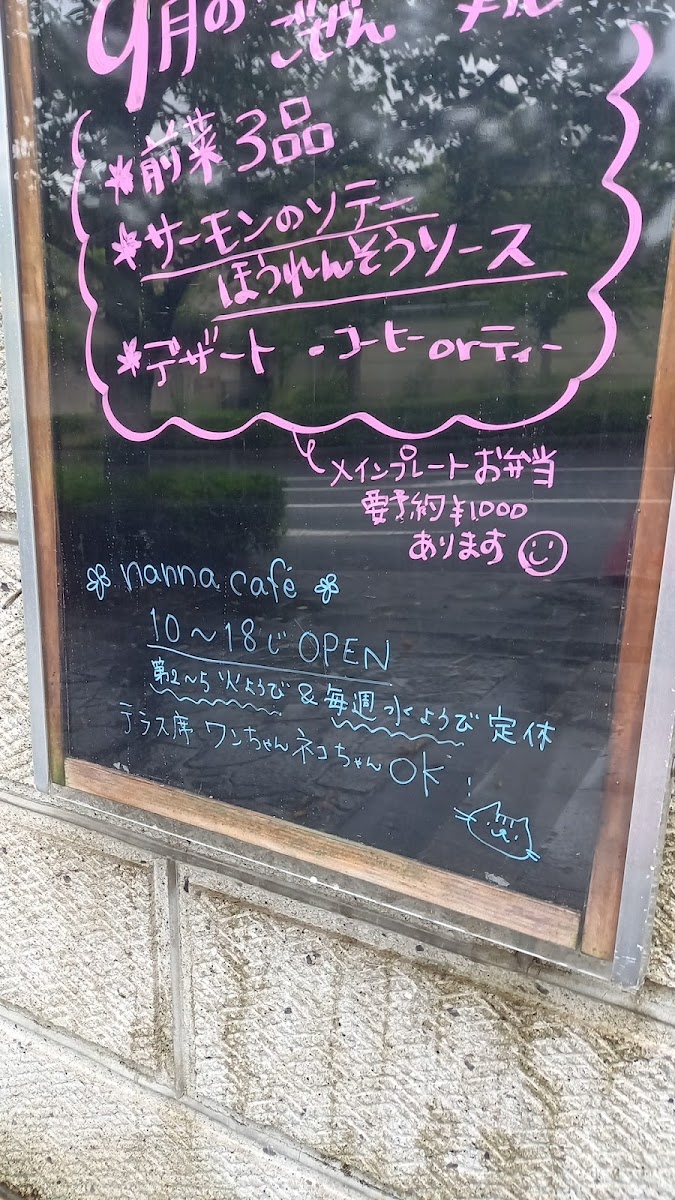 9月の ごぜん
*前菜3品
*サーモンのソテー
ほうれんそうソース
*デザート ・コーヒー or ティー
メインプレートお弁当
要予約¥1.000
あります
nanna café
10〜18じ OPEN
第2〜5火ようび&毎週水ようび定休
テラス席 ワンちゃんネコちゃん OK!